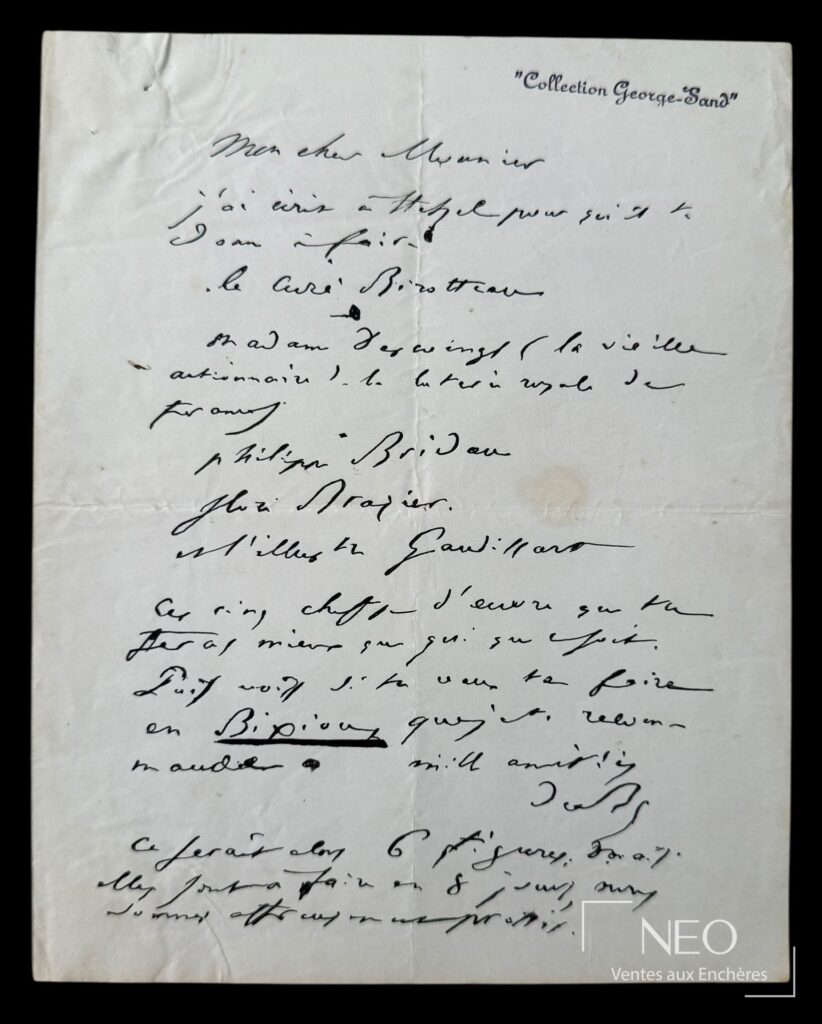 "Collection George-Sand"
Mon cher Meunier
j'ai écrit à Hetzel pour qu'il te
donne à faire
le curé Birotteau
madame Descoings (la vieille
actionnaire) de la loterie royale de
france
philippe Bridau
flore Brazier.
et l'illustre Gaudissart
Ces cinq chefs d'œuvre que tu
feras mieux que qui que ce soit.
Puis vois si tu veux te faire
en Bixiou que je te recom-
mande mille amitiés
de Bc
Ce serait alors 6 figures, mais
elles sont à faire en 8 jours, nous
sommes affreusement pressés.
NEO
Ventes aux Enchères